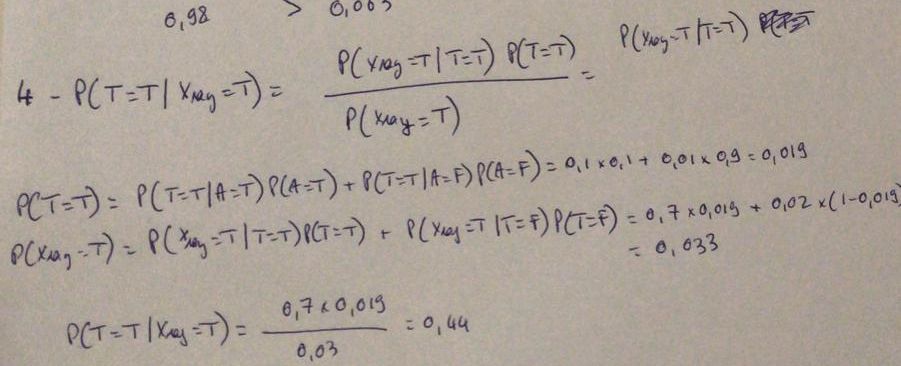 0,98 > 0,003
4 - P(T=T | Xray=T) = P(Xray=T | T=T) P(T=T) / P(Xray=T) = P(Xray=T | T=T)
P(T=T) = P(T=T | A=T) P(A=T) + P(T=T | A=F) P(A=F) = 0,1 x 0,1 + 0,01 x 0,9 = 0,019
P(Xray=T) = P(Xray=T | T=T) P(T=T) + P(Xray=T | T=F) P(T=F) = 0,7 x 0,019 + 0,02 x (1-0,019)
= 0,033
P(T=T | Xray=T) = 0,7 x 0,019 / 0,03 = 0,44